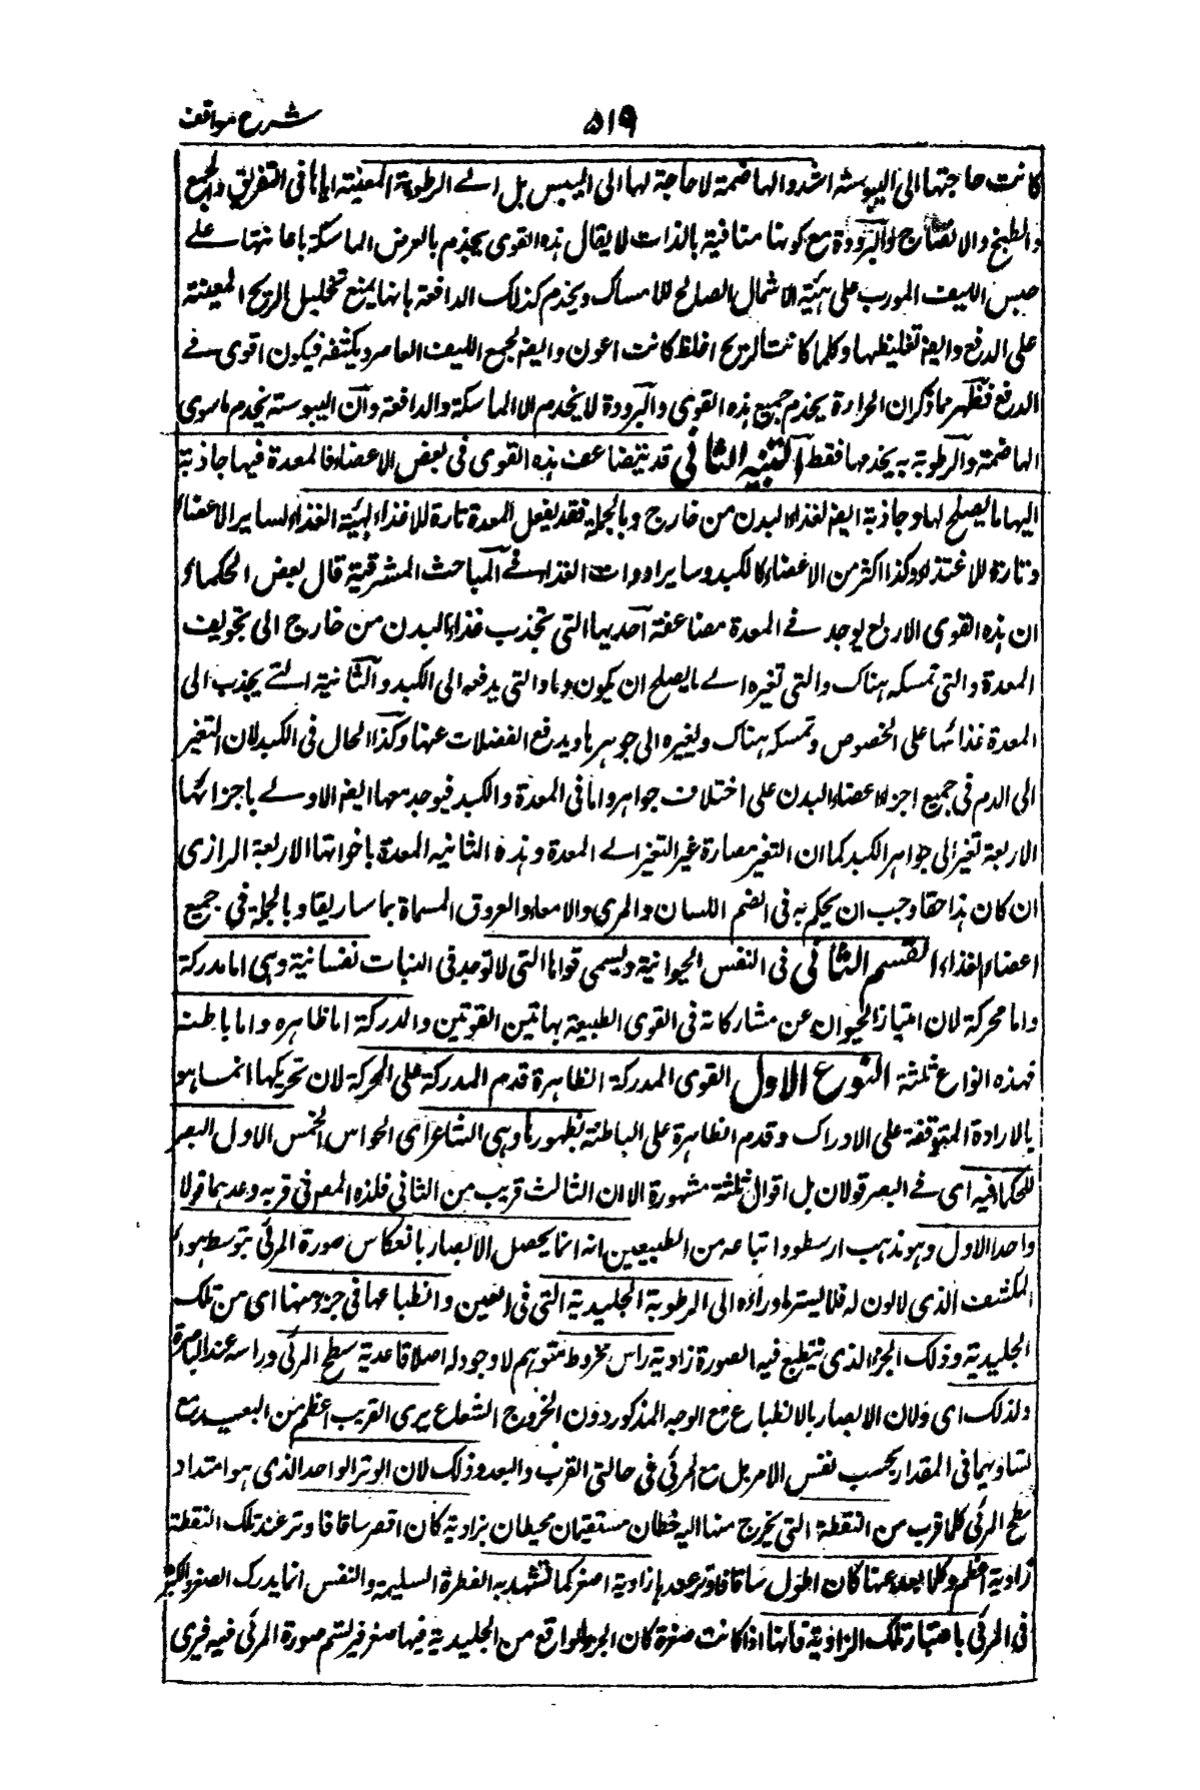 شرح مواقف ۵۱۹
كانت حاجتها الى اليبوسة اشد والهاضمة لا حاجة لها الى اليبس بل الى الرطوبة المعينة اياها فى التفريق والجمع
والطبخ والانضاج والبرودة مع كونها منافية بالذات لا يقال هذه القوى يخدم بالعرض الماسكة باعانتها على
حبس الليف المورب على هيئة الاشتمال الصالح للامساك ويخدم كذلك الدافعة بانها يمنع تحليل الريح المعينة
على الدفع وايضا تغليظها وكلما كانت الريح اغلظ كانت اعون وايضا لجمع الليف العاصر ويكثفه فيكون اقوى فى
الدفع فظهر مما ذكر ان الحرارة يخدم جميع هذه القوى والبرودة لا يخدم الا الماسكة والدافعة وان اليبوسة يخدم ما سوى
الهاضمة والرطوبة يخدمها فقط التنبيه الثانى قد يتضاعف هذه القوى فى بعض الاعضاء فالمعدة فيها جاذبة
اليها ما يصلح لها وجاذبة ايضا لغذاء البدن من خارج وبالجملة فقد يفعل المعدة تارة للاغذاء لهيئة الغذاء لساير الاعضاء
وتارة للاغتذاء وكذا اكثر من الاعضاء كالكبد وساير ادوات الغذاء فى المباحث المشرقية قال بعض الحكماء
ان هذه القوى الاربع يوجد فى المعدة مضاعفة احديها التى تجذب غذاء البدن من خارج الى تجويف
المعدة والتى تمسكه هناك والتى تغيره الى ما يصلح ان يكون دما والتى يدفعه الى الكبد والثانية التى يجذب الى
المعدة غذائها على الخصوص وتمسكه هناك وتغيره الى جوهرها ويدفع الفضلات عنها وكذا الحال فى الكبد لان التغير
الى الدم فى جميع اجزاء اعضاء البدن على اختلاف جواهرها فى المعدة والكبد فيوجد معها ايضا الاولى باجزائها
الاربعة تغير الى جواهر الكبد كما ان التغير عصارة غير التغير الى المعدة وهذه الثانيه المعدة باخواتها الاربعة الرازى
ان كان هذا حقا وجب ان يحكم به فى الفم اللسان والمرى والامعاء والعروق المسماة بماساريقا وبالجملة فى جميع
اعضاء الغذاء القسم الثانى فى النفس الحيوانية ويسمى قواها التى لا توجد فى النبات نفسانية وهى اما مدركة
واما محركة لان امتياز الحيوان عن مشاركاته فى القوى الطبيعة بهاتين القوتين والمدركة اما ظاهره واما باطنة
فهذه انواع ثلثة النوع الاول القوى المدركة الظاهرة قدم المدركة على المحركة لان تحريكها انما هو
بالارادة المتوقفة على الادراك وقدم الظاهرة على الباطنة لظهورها وهى المشاعر اى الحواس الخمس الاول البصر
للحكماء فيه اى فى البصر قولان بل اقوال ثلثة مشهورة الا ان الثالث قريب من الثانى فلذه المص فى قربه وعدهما قولا
واحدا الاول وهو مذهب ارسطو واتباعه من الطبيعين انه انما يحصل الابصار بانعكاس صورة المرئى بتوسط هواء
المشف الذى لا لون له فلا يستر ما وراءه الى الرطوبة الجليدية التى فى العين وانطباعها فى جزء منها اى من تلك
الجليدية وذلك الجزء الذى ينطبع فيه الصورة زاوية راس مخروط متوهم لا وجود له اصلا قاعدية سطح المرئى وراسه عند الباصرة
ولذلك اى ولان الابصار بالانطباع مع الوجه المذكور دون الخروج الشعاع يرى القريب اعظم من البعيد مع
تساويهما فى المقدار بحسب نفس الامر بل مع المرئى فى حالتى القرب والبعد وذلك لان الوتر الواحد الذى هو امتداد
سطح المرئى كلما قرب من النقطة التى يخرج منها اليه خطان مستقيمان يحيطان بزاوية كان اقصر ساقا فاوتر عند تلك النقطة
زاوية اعظم وكلما بعد عنها كان اطول ساقا فاوتر عندها زاوية اصغر كما تشهد به الفطرة السليمة والنفس انما يدرك الصغر والكبر
فى المرئى باعتبار تلك الزاوية فانها اذا كانت صغرة كان الجزء الواقع من الجليدية فيها صغر فيرتسم صورة المرئى فيه فيرى